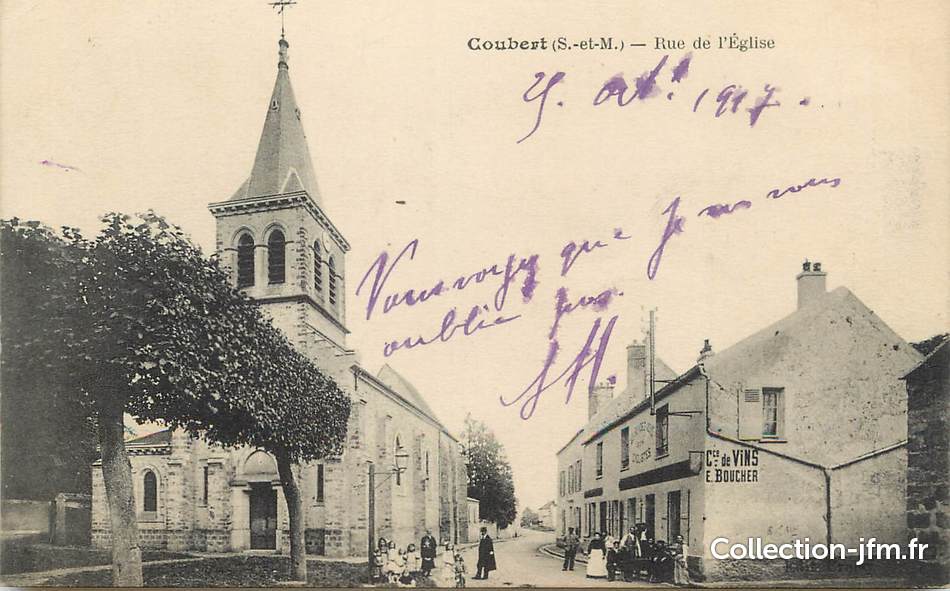 Coubert (S.-et-M.) — Rue de l'Église
25. Oct. 1917.
Vous voyez que je ne vous
oublie pas
Cce de VINS
E. BOUCHER
Collection-jfm.fr